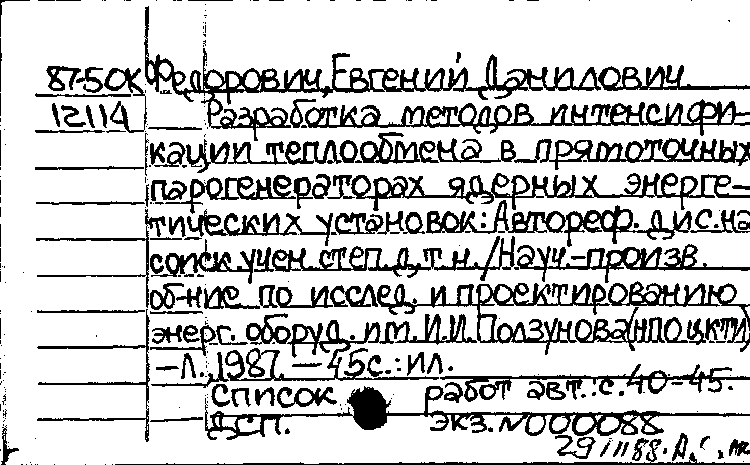 87-50К Федорович, Евгений Данилович
12114 Разработка методов интенсифи-
кации теплообмена в прямоточных
парогенераторах ядерных энерге-
тических установок: Автореф. дис. на
соиск. учен. степ. д.т.н. / Науч.-произв.
об-ние по исслед. и проектированию
энерг. оборуд. им. И.И. Ползунова (НПО ЦКТИ)
-Л. 1987. - 45с.: ил.
Список работ авт.: с. 40-45.
ДСП. экз. N000088